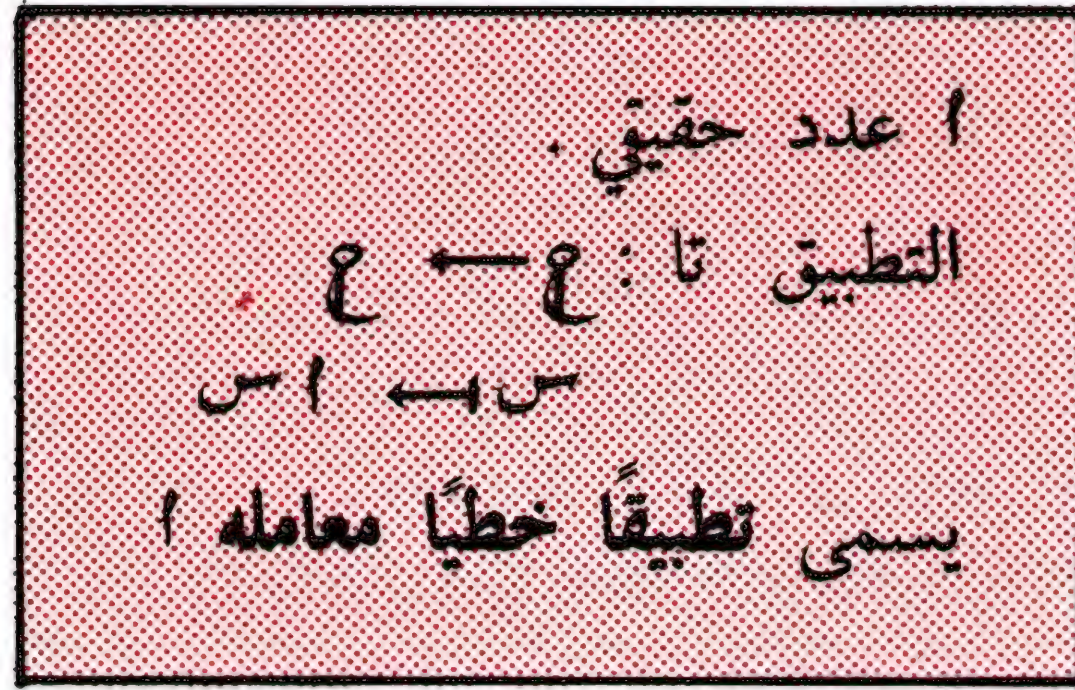 ا عدد حقيقي .
التطبيق تا : ح ← ح
س ↤ ا س
يسمى تطبيقًا خطيًا معامله ا